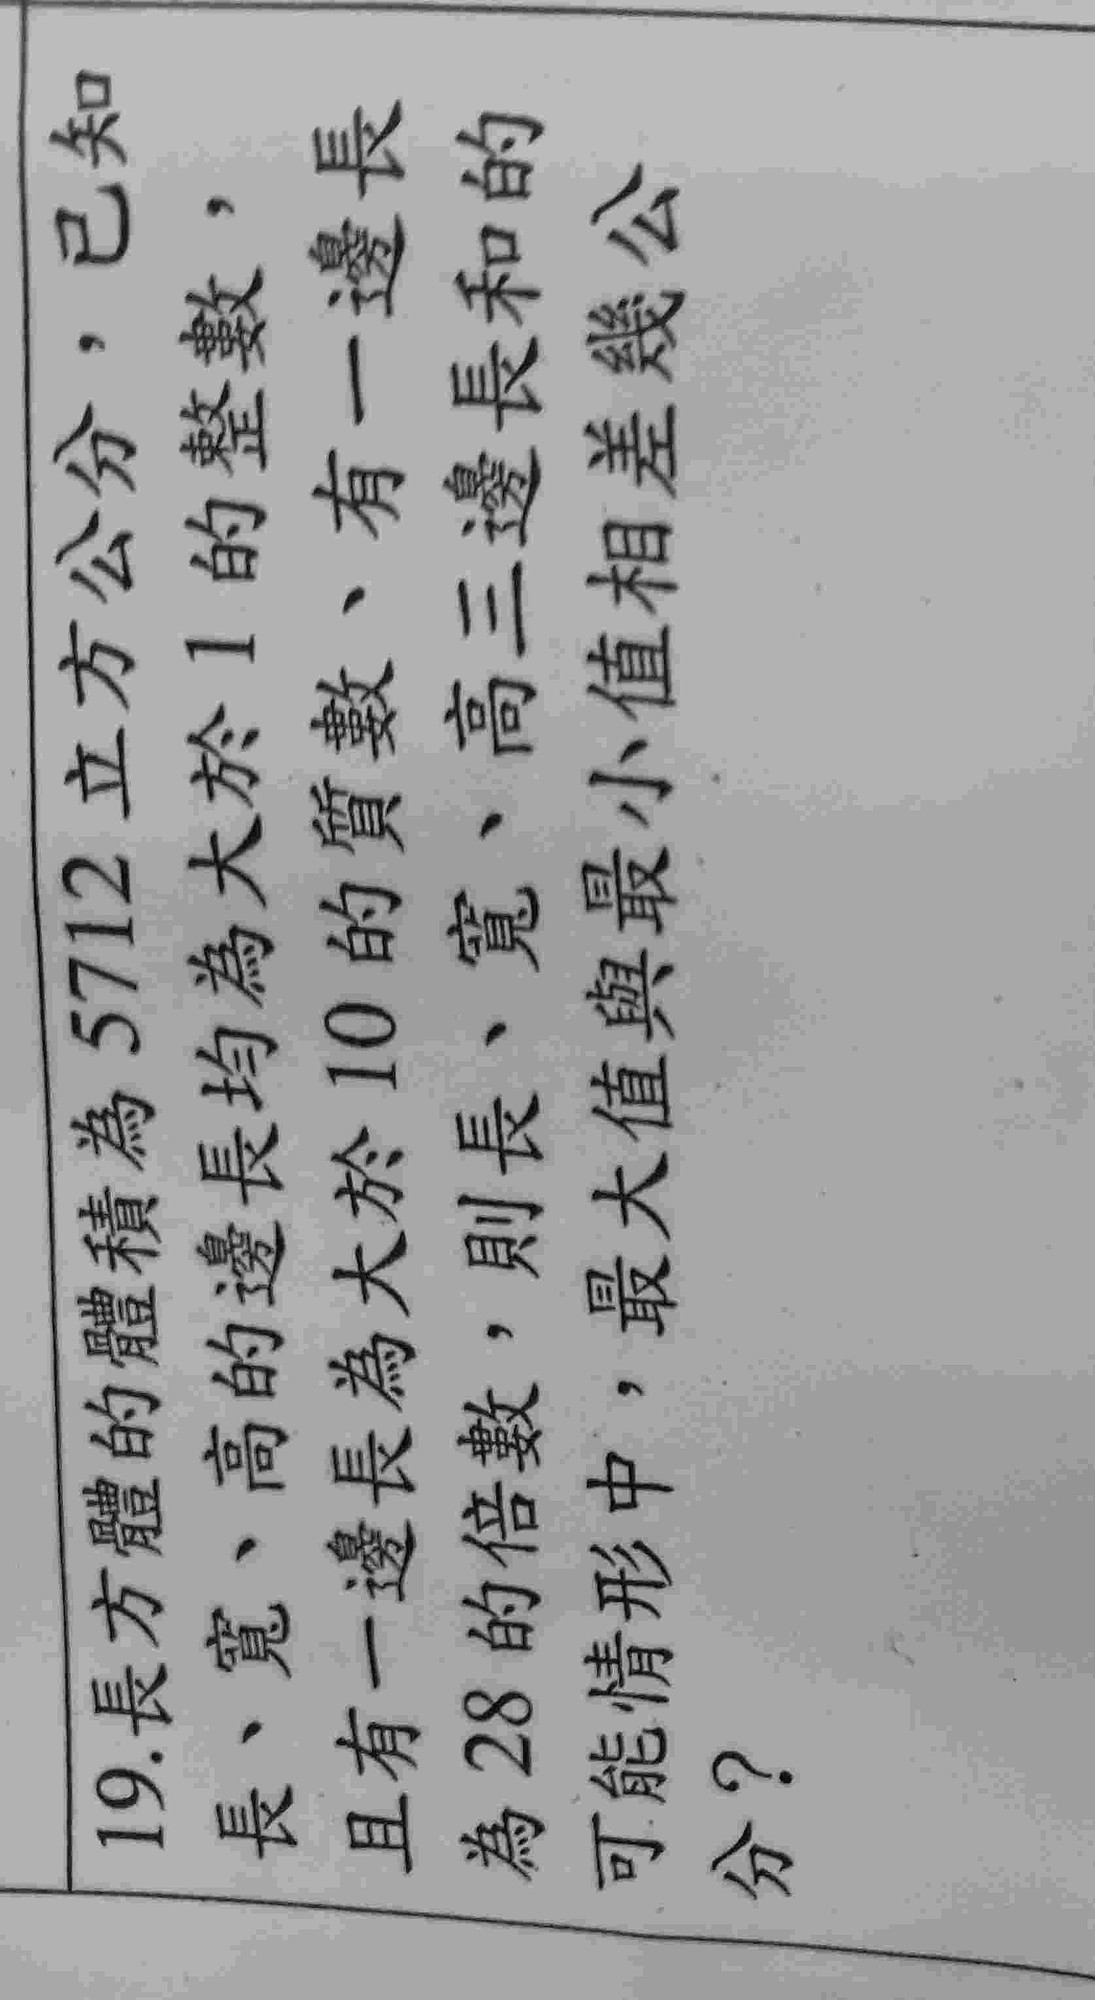 19.長方體的體積為 5712 立方公分，已知
長、寬、高的邊長均為大於 1 的整數，
且有一邊長為大於 10 的質數、有一邊長
為 28 的倍數，則長、寬、高三邊長和的
可能情形中，最大值與最小值相差幾公
分？